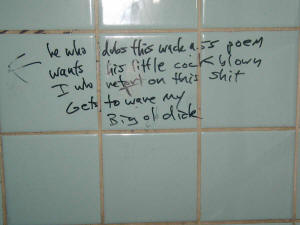 he who dubs this wack ass poem
wants his little cock blown
I who retort on this shit
Gets to wave my
Big ol dick